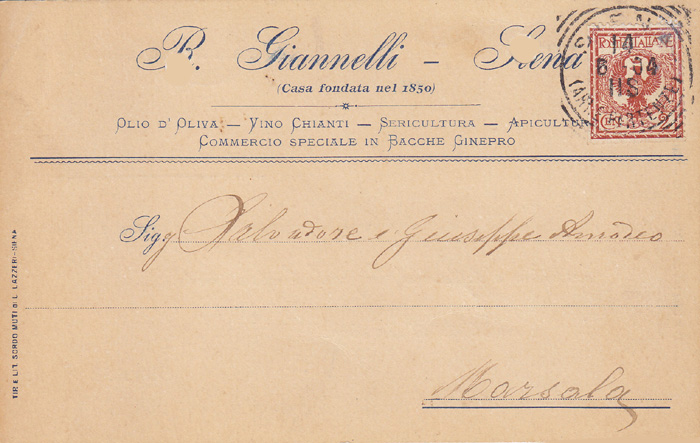 R. Giannelli - Siena
(Casa fondata nel 1850)
OLIO D'OLIVA — VINO CHIANTI — SERICULTURA — APICULTU
COMMERCIO SPECIALE IN BACCHE GINEPRO
SIENA
14
6 04
POSTE ITALIANE
2
Sigg Salvadore e Giuseppe Amodeo
Marsala
TIP. E LIT. SORDO MUTI DI L. LAZZERI-SIENA